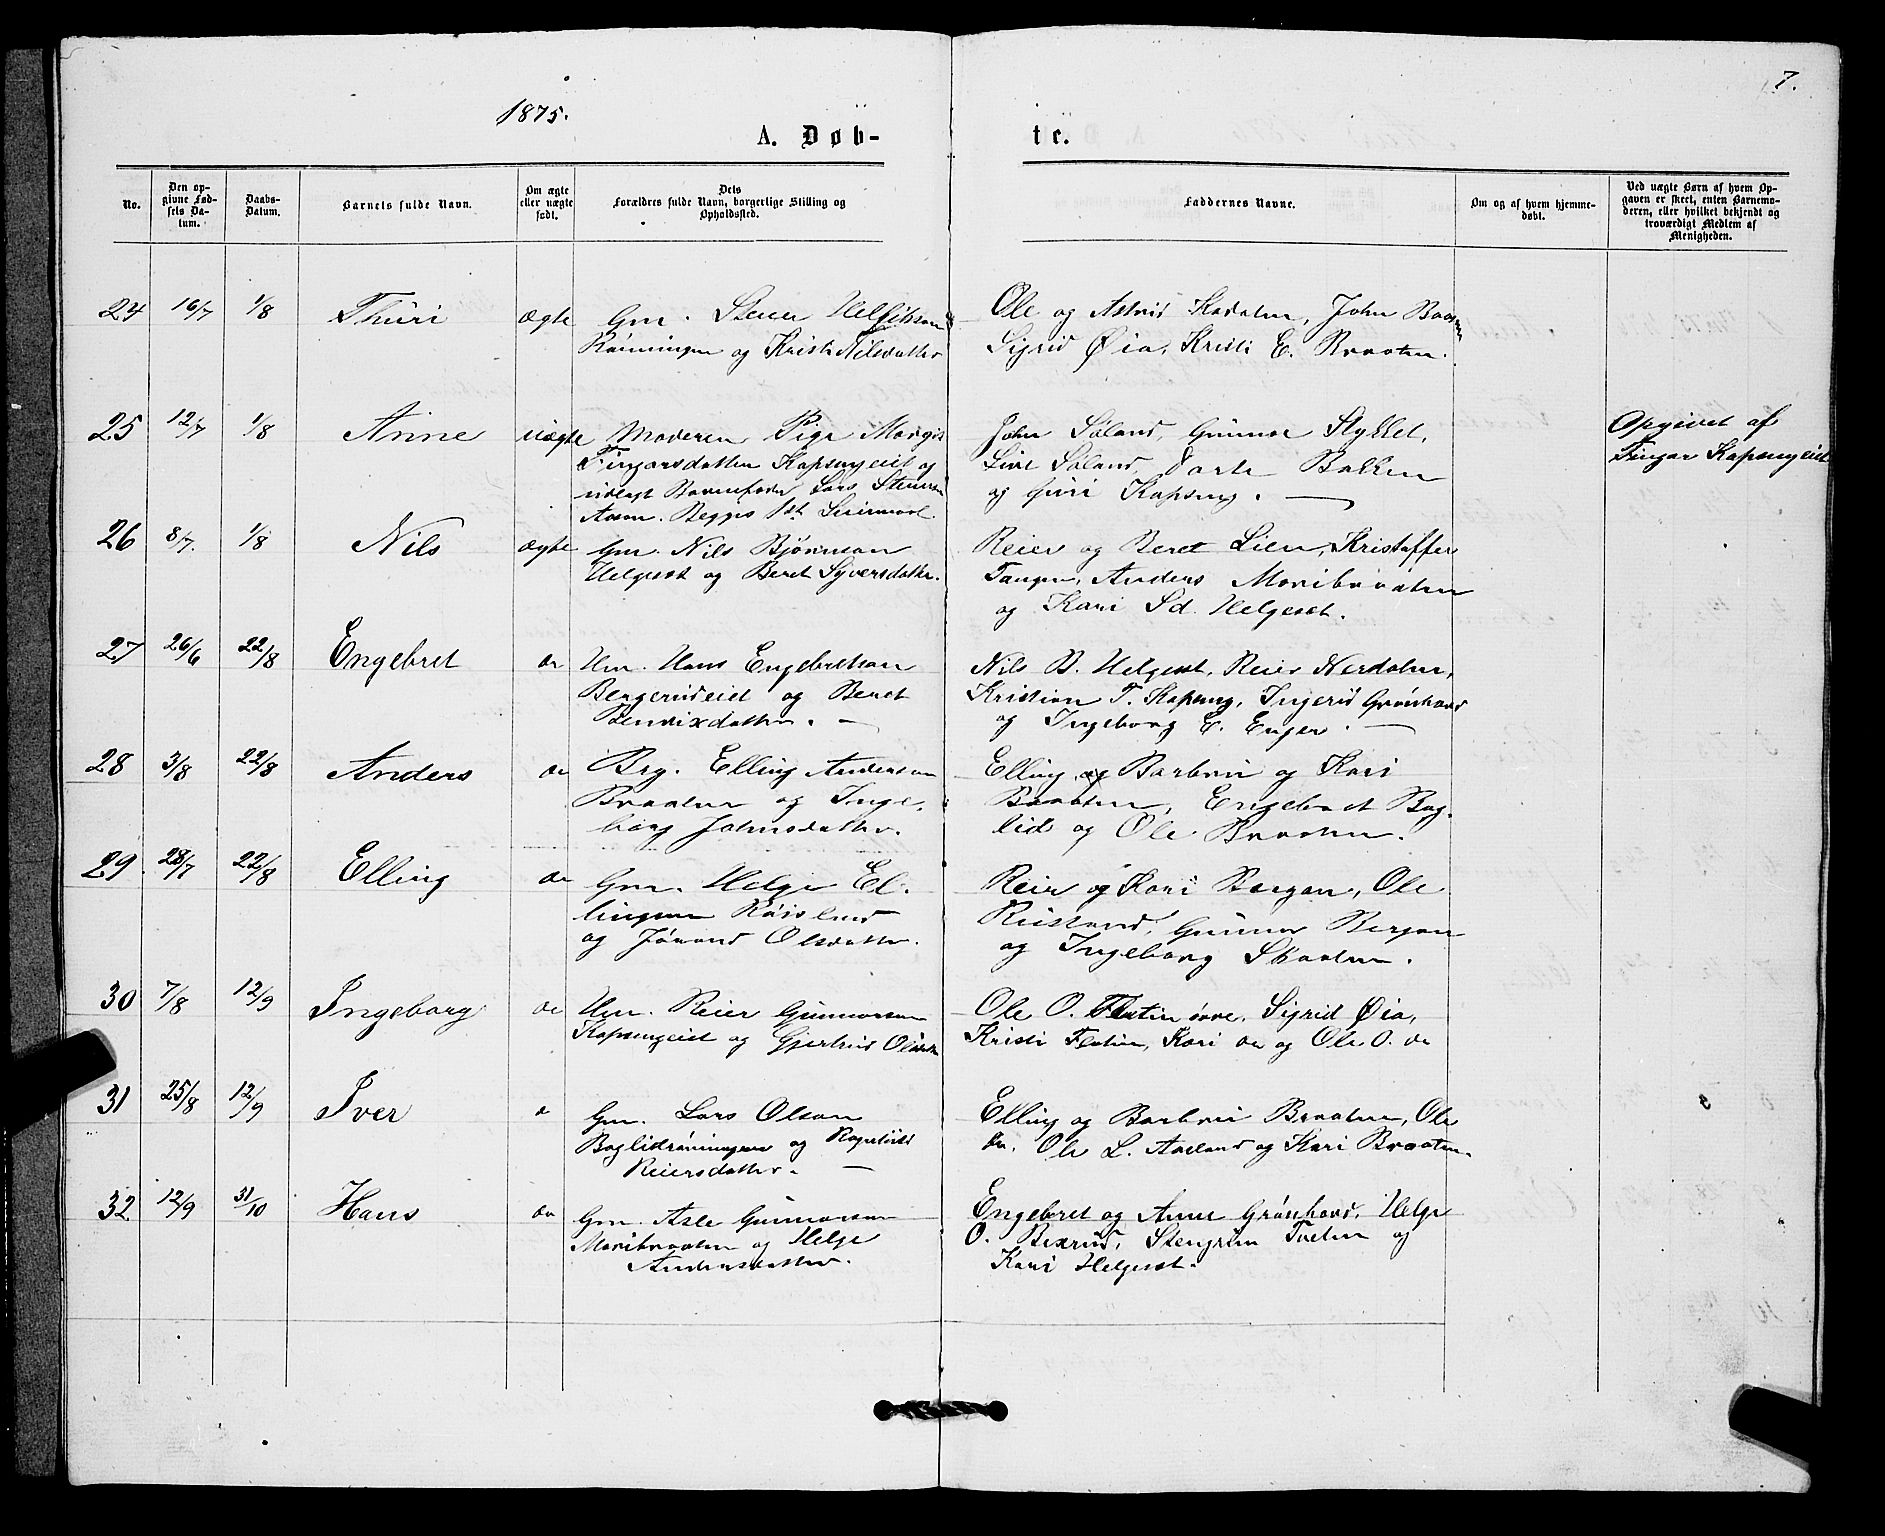 7.
1875.
A. Døb-
te.
No.
Den op-
givne Fød-
sels Da-
tum.
Daabs-
Datum.
Barnets fulde Navn.
Om ægte
eller uægte
født.
Dets
Forældres fulde Navn, borgerlige Stilling og
Opholdssted.
Faddernes Navne.
Om og af hvem hjemme-
døbt.
Ved uægte Børn af hvem Op-
gaven er skeet, enten Barnemo-
deren, eller hvilket bekjendt og
troværdigt Medlem af
Menigheden.
24 16/7 1/8 Thuri ægte Gm. Stener
og Kristi Nilsdatter
Ole og Astrid John
Sigrid Øia, Kristi E. Braaten.
25 12/7 1/8 Anne uægte Moderen Pige Margit
Fingarsdatter Kapsrugeiet og
udlagt Barnefader Lars Stenersen
John Søland, Gunnor Stykket,
Live Søland, Dorte Bakken
og Guri Kapsrug. —
Opgivet af
Fingar Kapsrugeiet
26 8/7. 1/8 Nils ægte Gm. Nils Bjørnson
Helgeset og Beret Syversdatter.
Reier og Beret Lien, Kristoffer
Tangen, Anders Moribraaten
og Kari Sd. Helgeset.
27 26/6 22/8 Engebret do Hm. Hans Engebretson
Bergerudeiet og Beret
Bendixdatter. —
Nils B. Helgeset, Reier Nerdalen,
Kristian T. Kapsrug, Ingerid Grønhovd
og Ingeborg E. Enger. —
28 3/8 22/8 Anders do Brg. Elling Anderson
Braaten og Inge-
borg Johnsdatter.
Elling og Barbrui og Kari
Braaten, Engebret Bag-
lid og Ole Braaten.
29 28/7 22/8 Elling do Gm. Helge El-
lingson
og Jørand Olsdatter.
Reier og Kari Bergan, Ole
Gunnor Bergan
og Ingeborg
30 7/8 12/9 Ingeborg do Hm. Reier Gunnorson
Kapsrugeiet og Gjertrud
Ole O. Flatin øvre, Sigrid Øia,
Kristi Flatin, Kari do og Ole O. do
31 25/8 12/9 Iver do Gm. Lars Olson
Baglidrøningen og Ragnhild
Reiersdatter. —
Elling og Barbrui Braaten, Ole
do, Ole L. og Kari Braaten.
32 12/9 31/10 Hans do Gm. Asle Gunnorson
Moribraaten og Helge
Andersdatter.
Engebret og Anne Grønhovd, Helge
O. Bexrud, Stengrim og
Kari Helgeset.